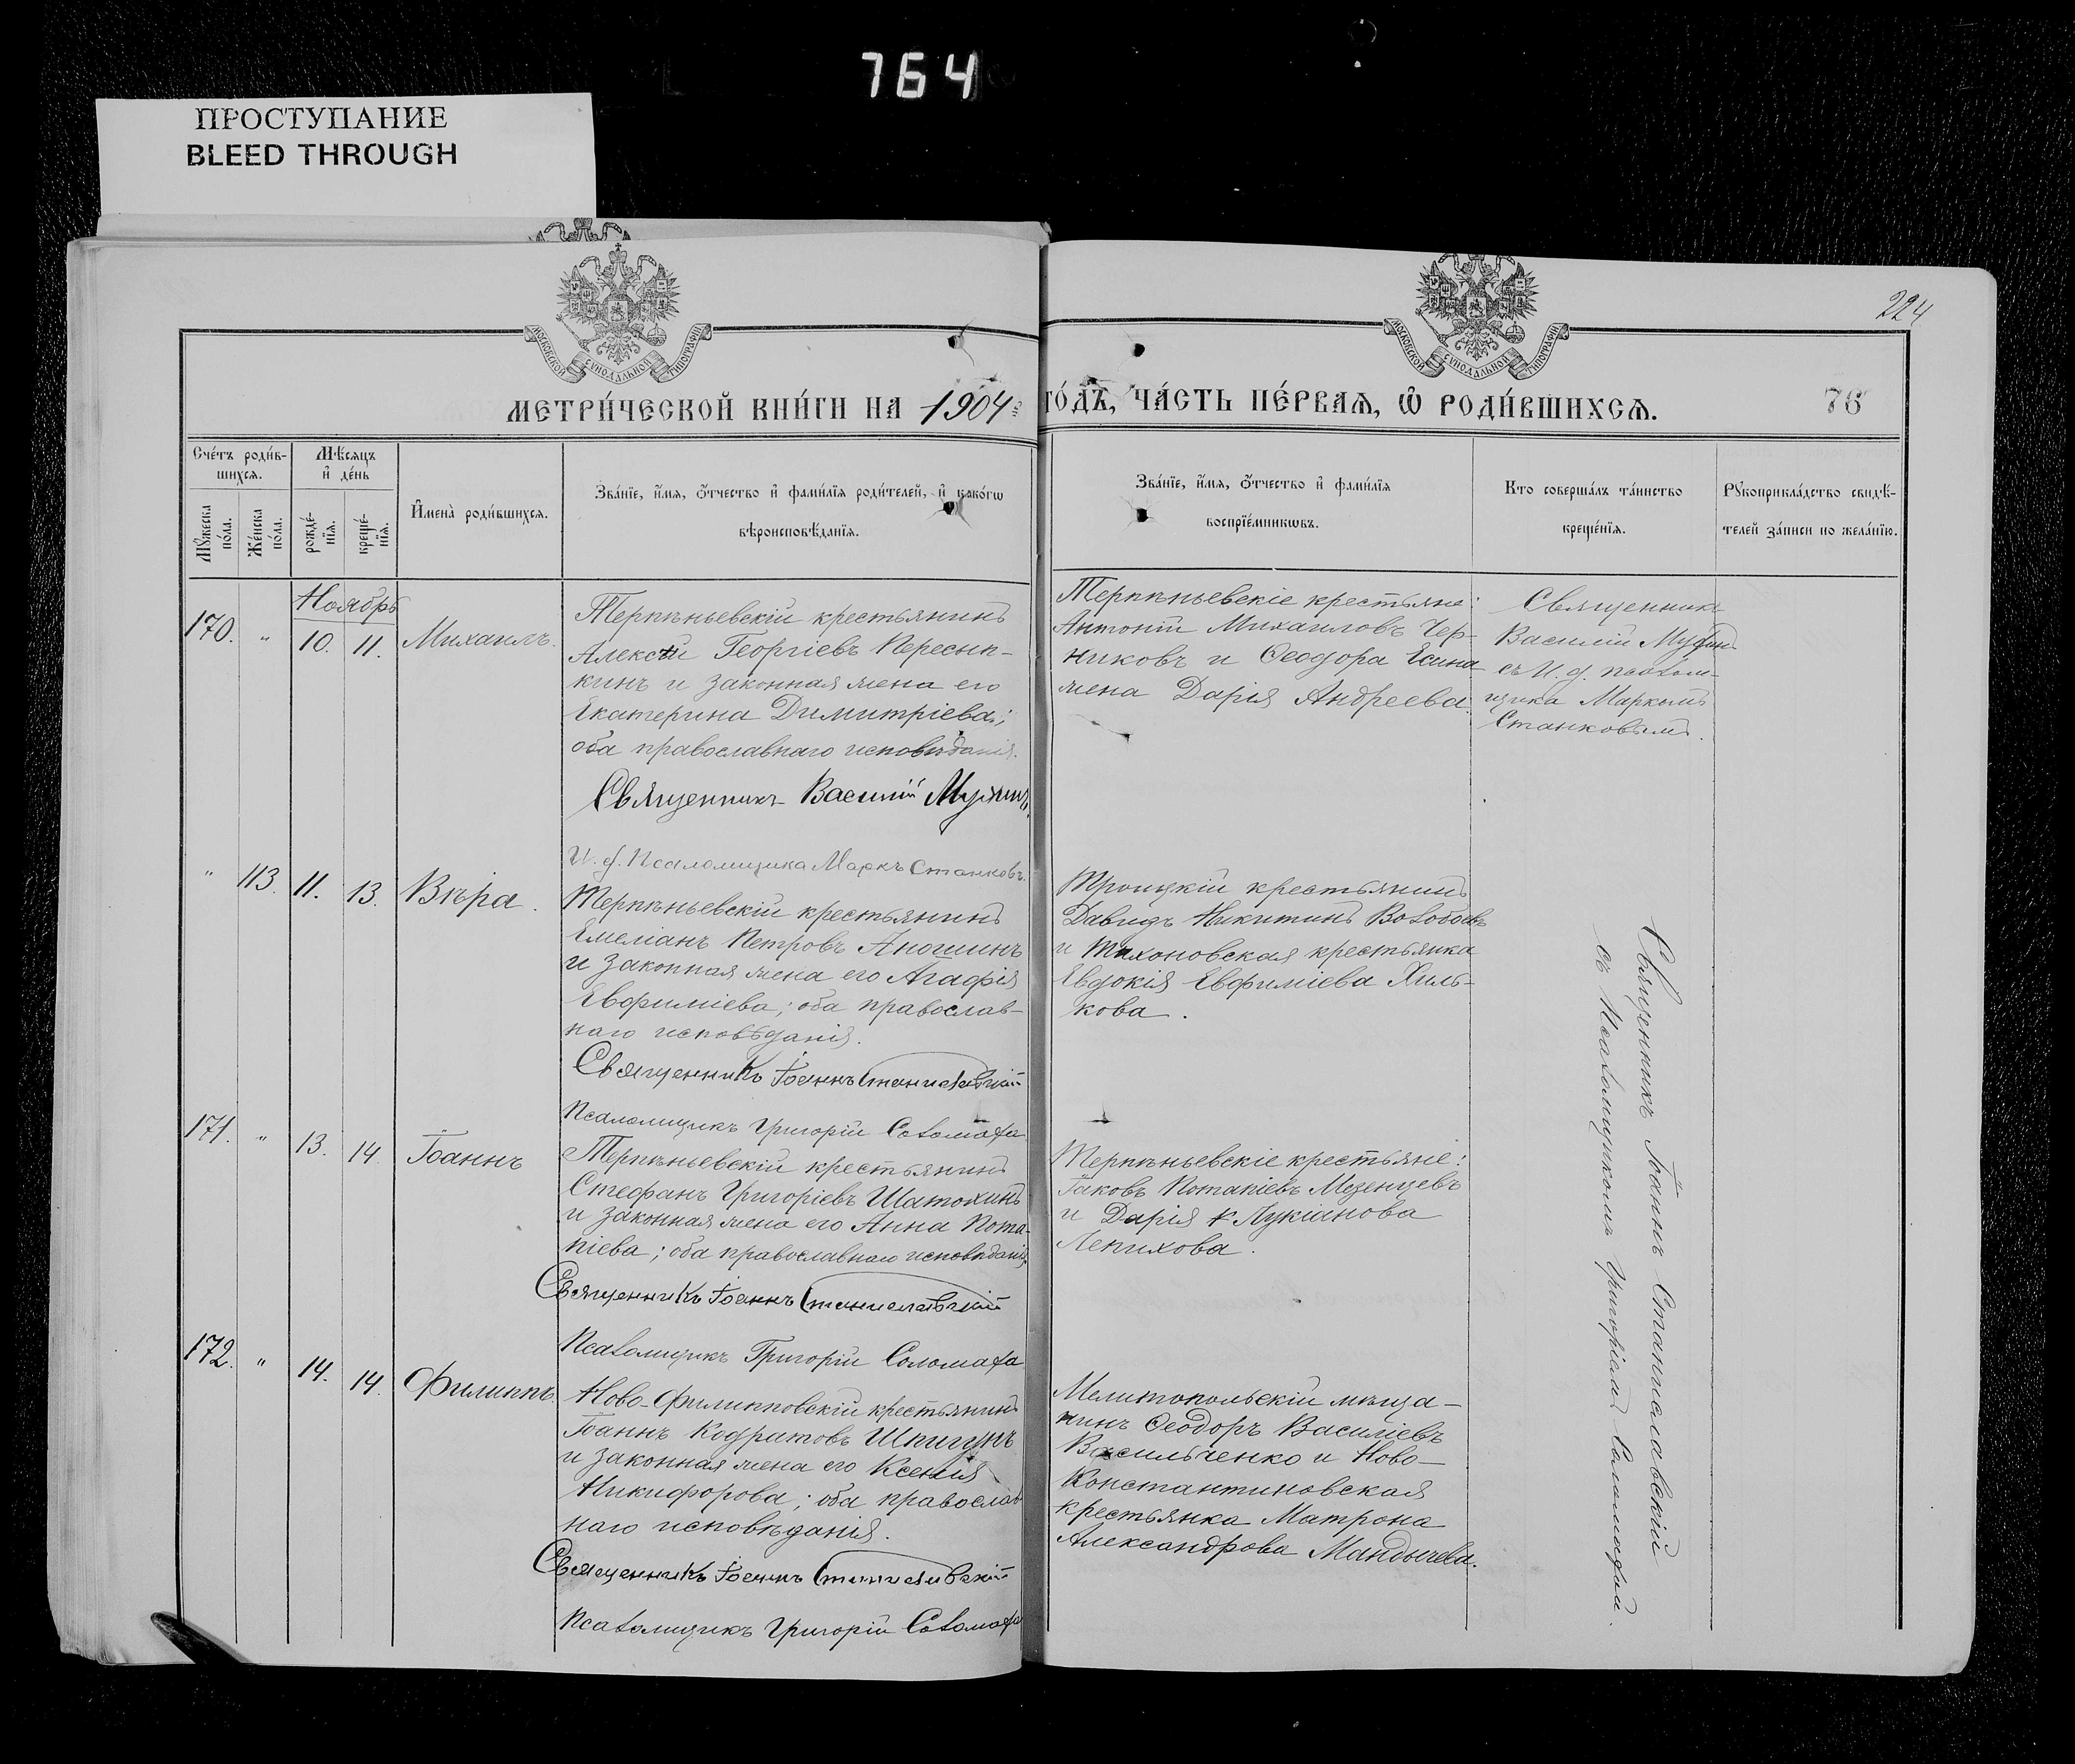 764
ПРОСТУПАНИЕ
BLEED THROUGH
224
МОСКОВСКОЙ СѴНОДАЛЬНОЙ ТИПОГРАФІИ
МОСКОВСКОЙ СѴНОДАЛЬНОЙ ТИПОГРАФІИ
МЕТРИ́ЧЕСКОЙ КНИ́ГИ НА 1904 ГО́ДЪ, ЧА́СТЬ ПЕ́РВАЯ, Ѡ РОДИ́ВШИХСЯ.
76
Сче́тъ роди́в-
шихся.
Мѣ́сяцъ
и де́нь
Му́жеска
по́ла.
Же́нска
по́ла.
рожде́-
нїя.
креще́-
нїя.
Имена̀ роди́вшихся.
Зва́нїе, и́мя, о́тчество и фами́лїя роди́телей, и како́гѡ
вѣроисповѣ́данїя.
Зва́нїе, и́мя, о́тчество и фами́лїя
воспрїе́мникѡвъ.
Кто соверша́лъ та́инство
креще́нїя.
Рукоприкла́дство свидѣ́-
телей за́писи по жела́нїю.
Ноябрь
170. " 10. 11. Михаилъ.
Терпѣньевскій крестьянинъ
Алексѣй Георгіевъ Пересып-
кинъ и законная жена его
Екатерина Димитріева;
оба православнаго исповѣданія.
Священникъ Василій Мухинъ
И. д. Псаломщика Маркъ Станковъ.
Терпѣньевскіе крестьяне:
Антоній Михаиловъ Чер-
никовъ и Ѳеодора Есина
жена Дарія Андреева.
Священникъ
Василій Мухинъ
съ И. д. псалом-
щика Маркомъ
Станковымъ.
" 113. 11. 13. Вѣра.
Терпѣньевскій крестьянинъ
Емеліанъ Петровъ Аношинъ
и законная жена его Агафія
Евфиміева; оба православ-
наго исповѣданія.
Священникъ Іоаннъ Станиславскій
Псаломщикъ Григорій Соломаха
Троицкій крестьянинъ
Давидъ Никитинъ
и Тихоновская крестьянка
Евдокія Евфиміева Хиль-
кова.
Священникъ Іоаннъ Станиславскій
съ Псаломщикомъ Григоріемъ Соломахой.
171. " 13. 14 Іоаннъ
Терпѣньевскій крестьянинъ
Стефанъ Григоріевъ Шатохинъ
и законная жена его Анна Пота-
піева; оба православнаго исповѣданія.
Священникъ Іоаннъ Станиславскій
Псаломщикъ Григорій Соломаха
Терпѣньевскіе крестьяне:
Іаковъ Потапіевъ Мезенцевъ
и Дарія Лукіанова
Лепихова.
172. " 14. 14. Филиппъ.
Ново-Филипповскій крестьянинъ
Іоаннъ Кодратовъ Шпигунъ
и законная жена его Ксенія
Никифорова; оба православ-
наго исповѣданія.
Священникъ Іоаннъ Станиславскій
Псаломщикъ Григорій Соломаха
Мелитопольскій мѣща-
нинъ Ѳеодоръ Василіевъ
Васильченко и Ново-
Константиновская
крестьянка Матрона
Александрова Мандычева.